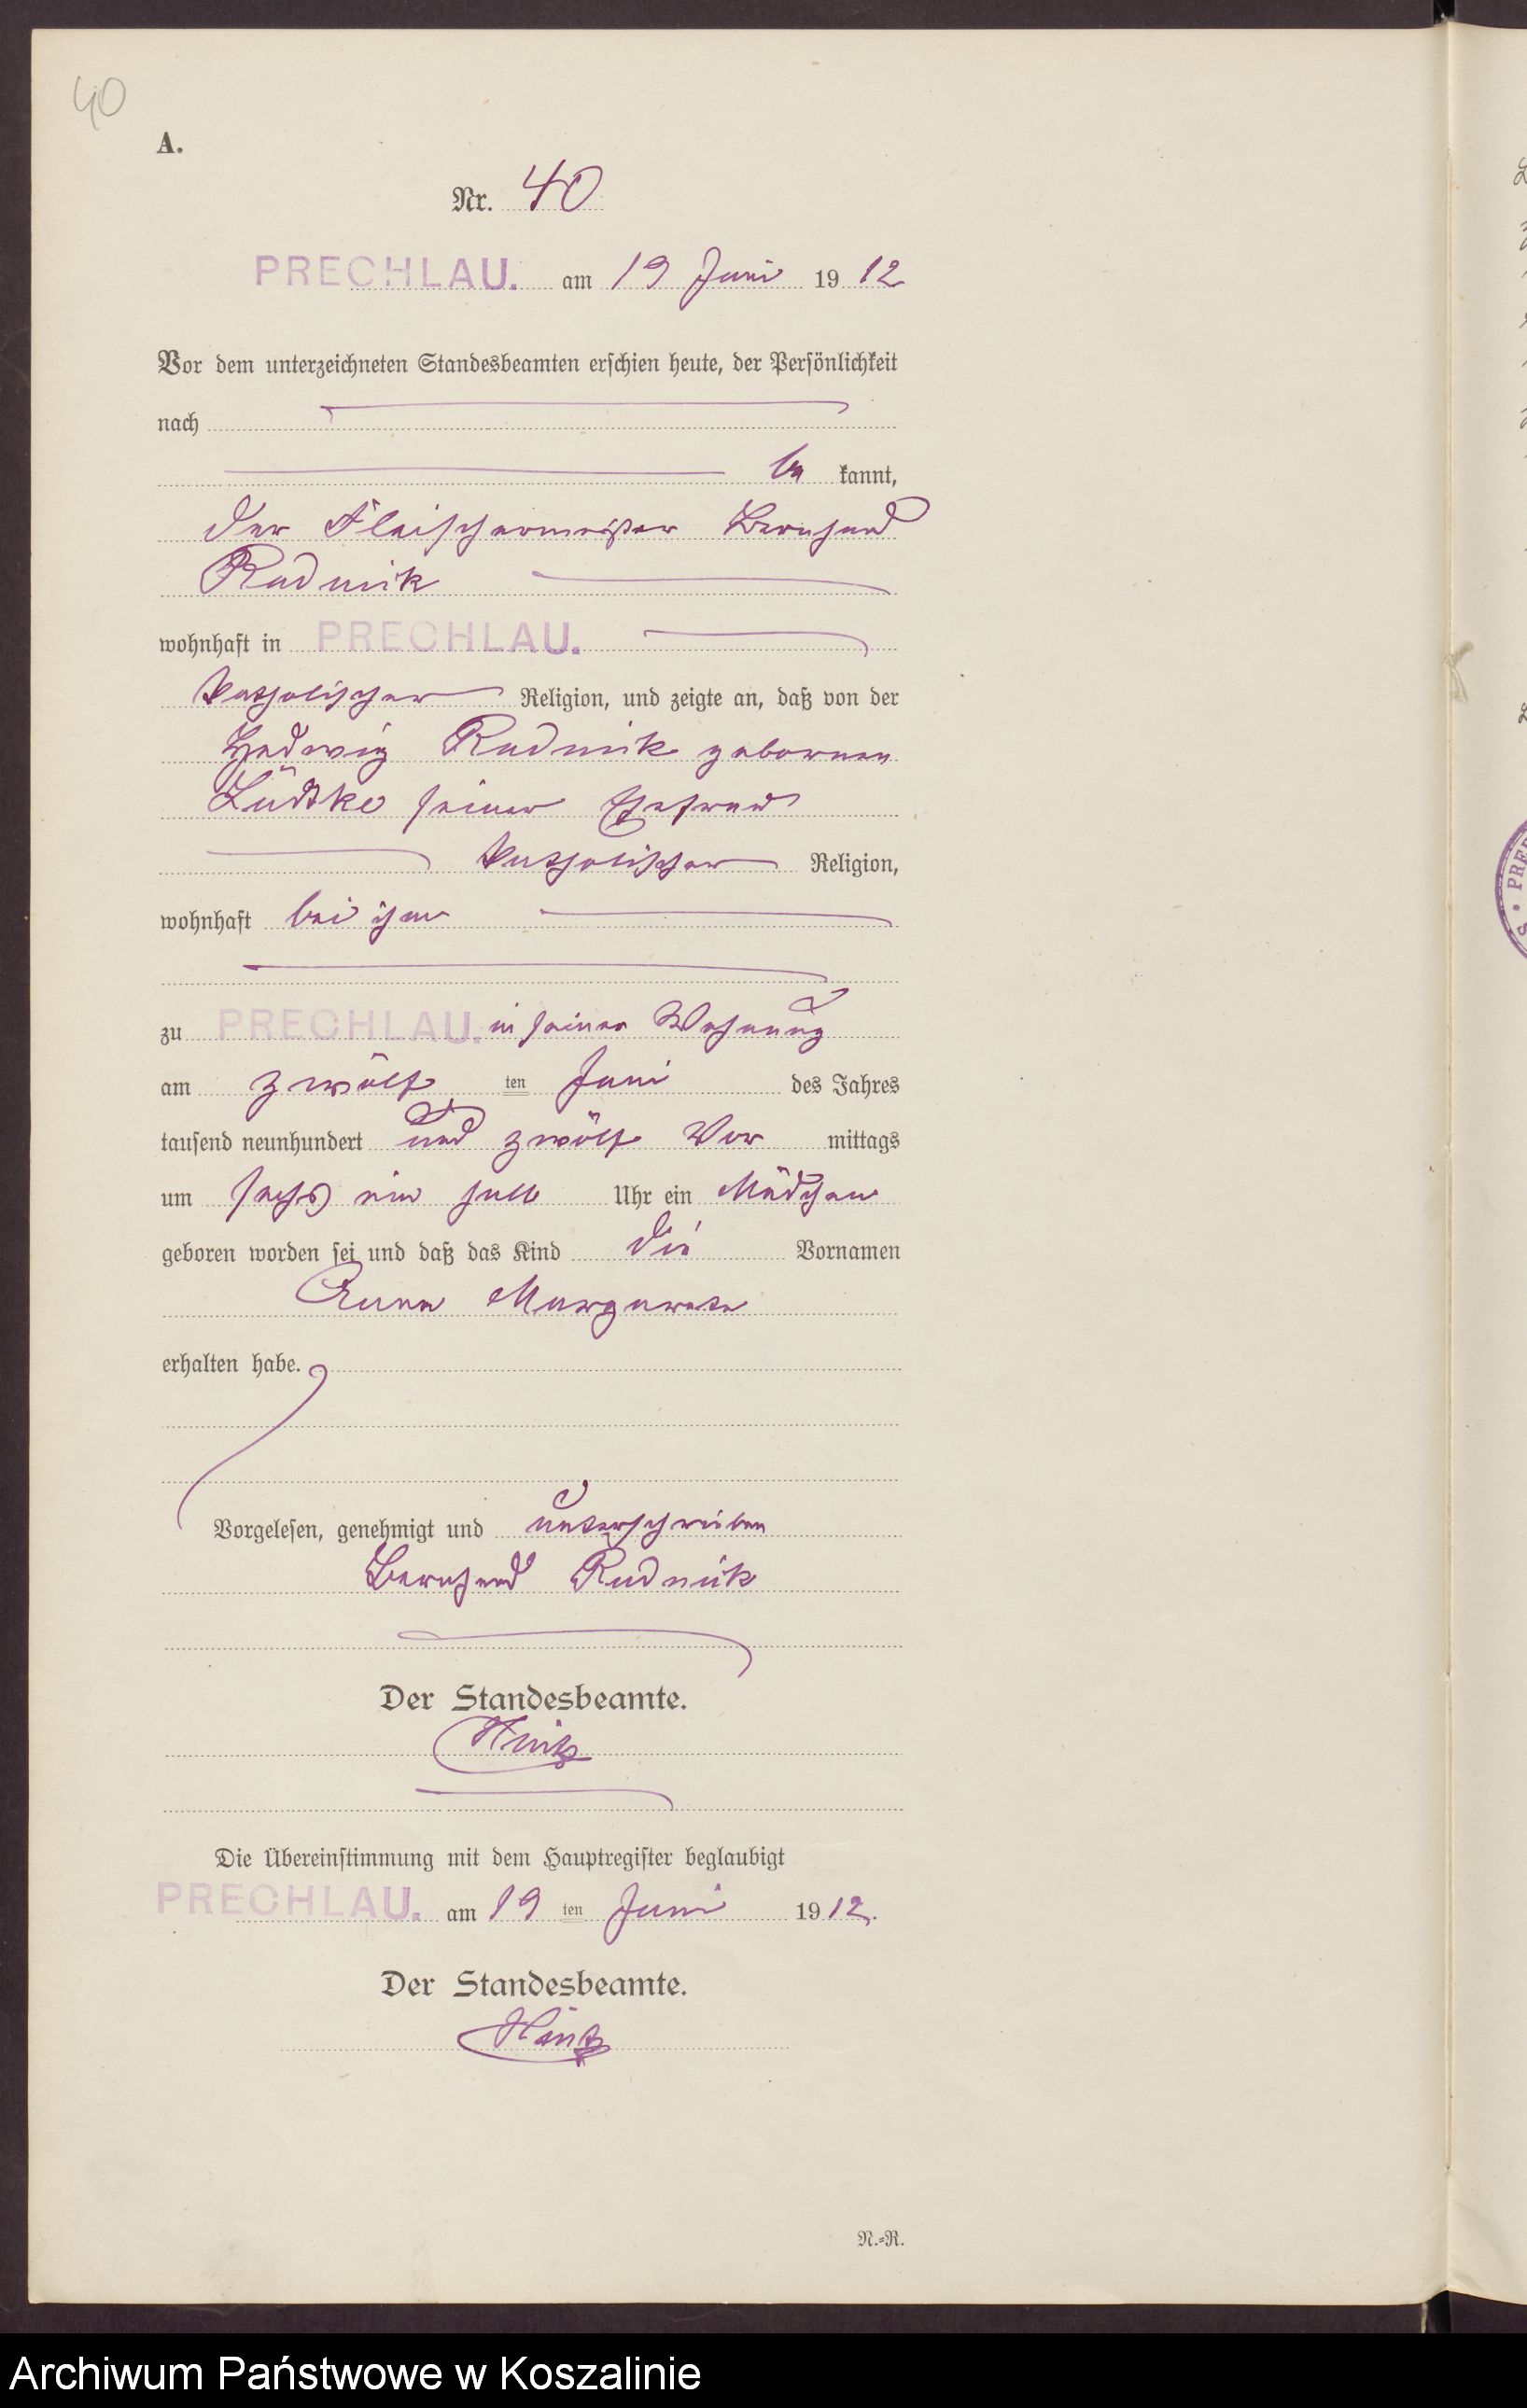 40
A.
Nr. 40
PRECHLAU. am 19 Juni 1912
Vor dem unterzeichneten Standesbeamten erschien heute, der Persönlichkeit
nach
be kannt,
der Fleischermeister Bernhard
Rudnik
wohnhaft in PRECHLAU.
katholischer Religion, und zeigte an, daß von der
Hedwig Rudnik geborenen
Lüdtke seiner Ehefrau
katholischer Religion,
wohnhaft bei ihm
zu PRECHLAU. in seiner Wohnung
am zwölf ten Juni des Jahres
tausend neunhundert und zwölf Vor mittags
um sechs ein halb Uhr ein Mädchen
geboren worden sei und daß das Kind die Vornamen
Anna Margarete
erhalten habe.
Vorgelesen, genehmigt und unterschrieben
Bernhard Rudnik
Der Standesbeamte.
Hintz
Die Übereinstimmung mit dem Hauptregister beglaubigt
PRECHLAU. am 19 ten Juni 1912.
Der Standesbeamte.
Hintz
N.=R.
Archiwum Państwowe w Koszalinie